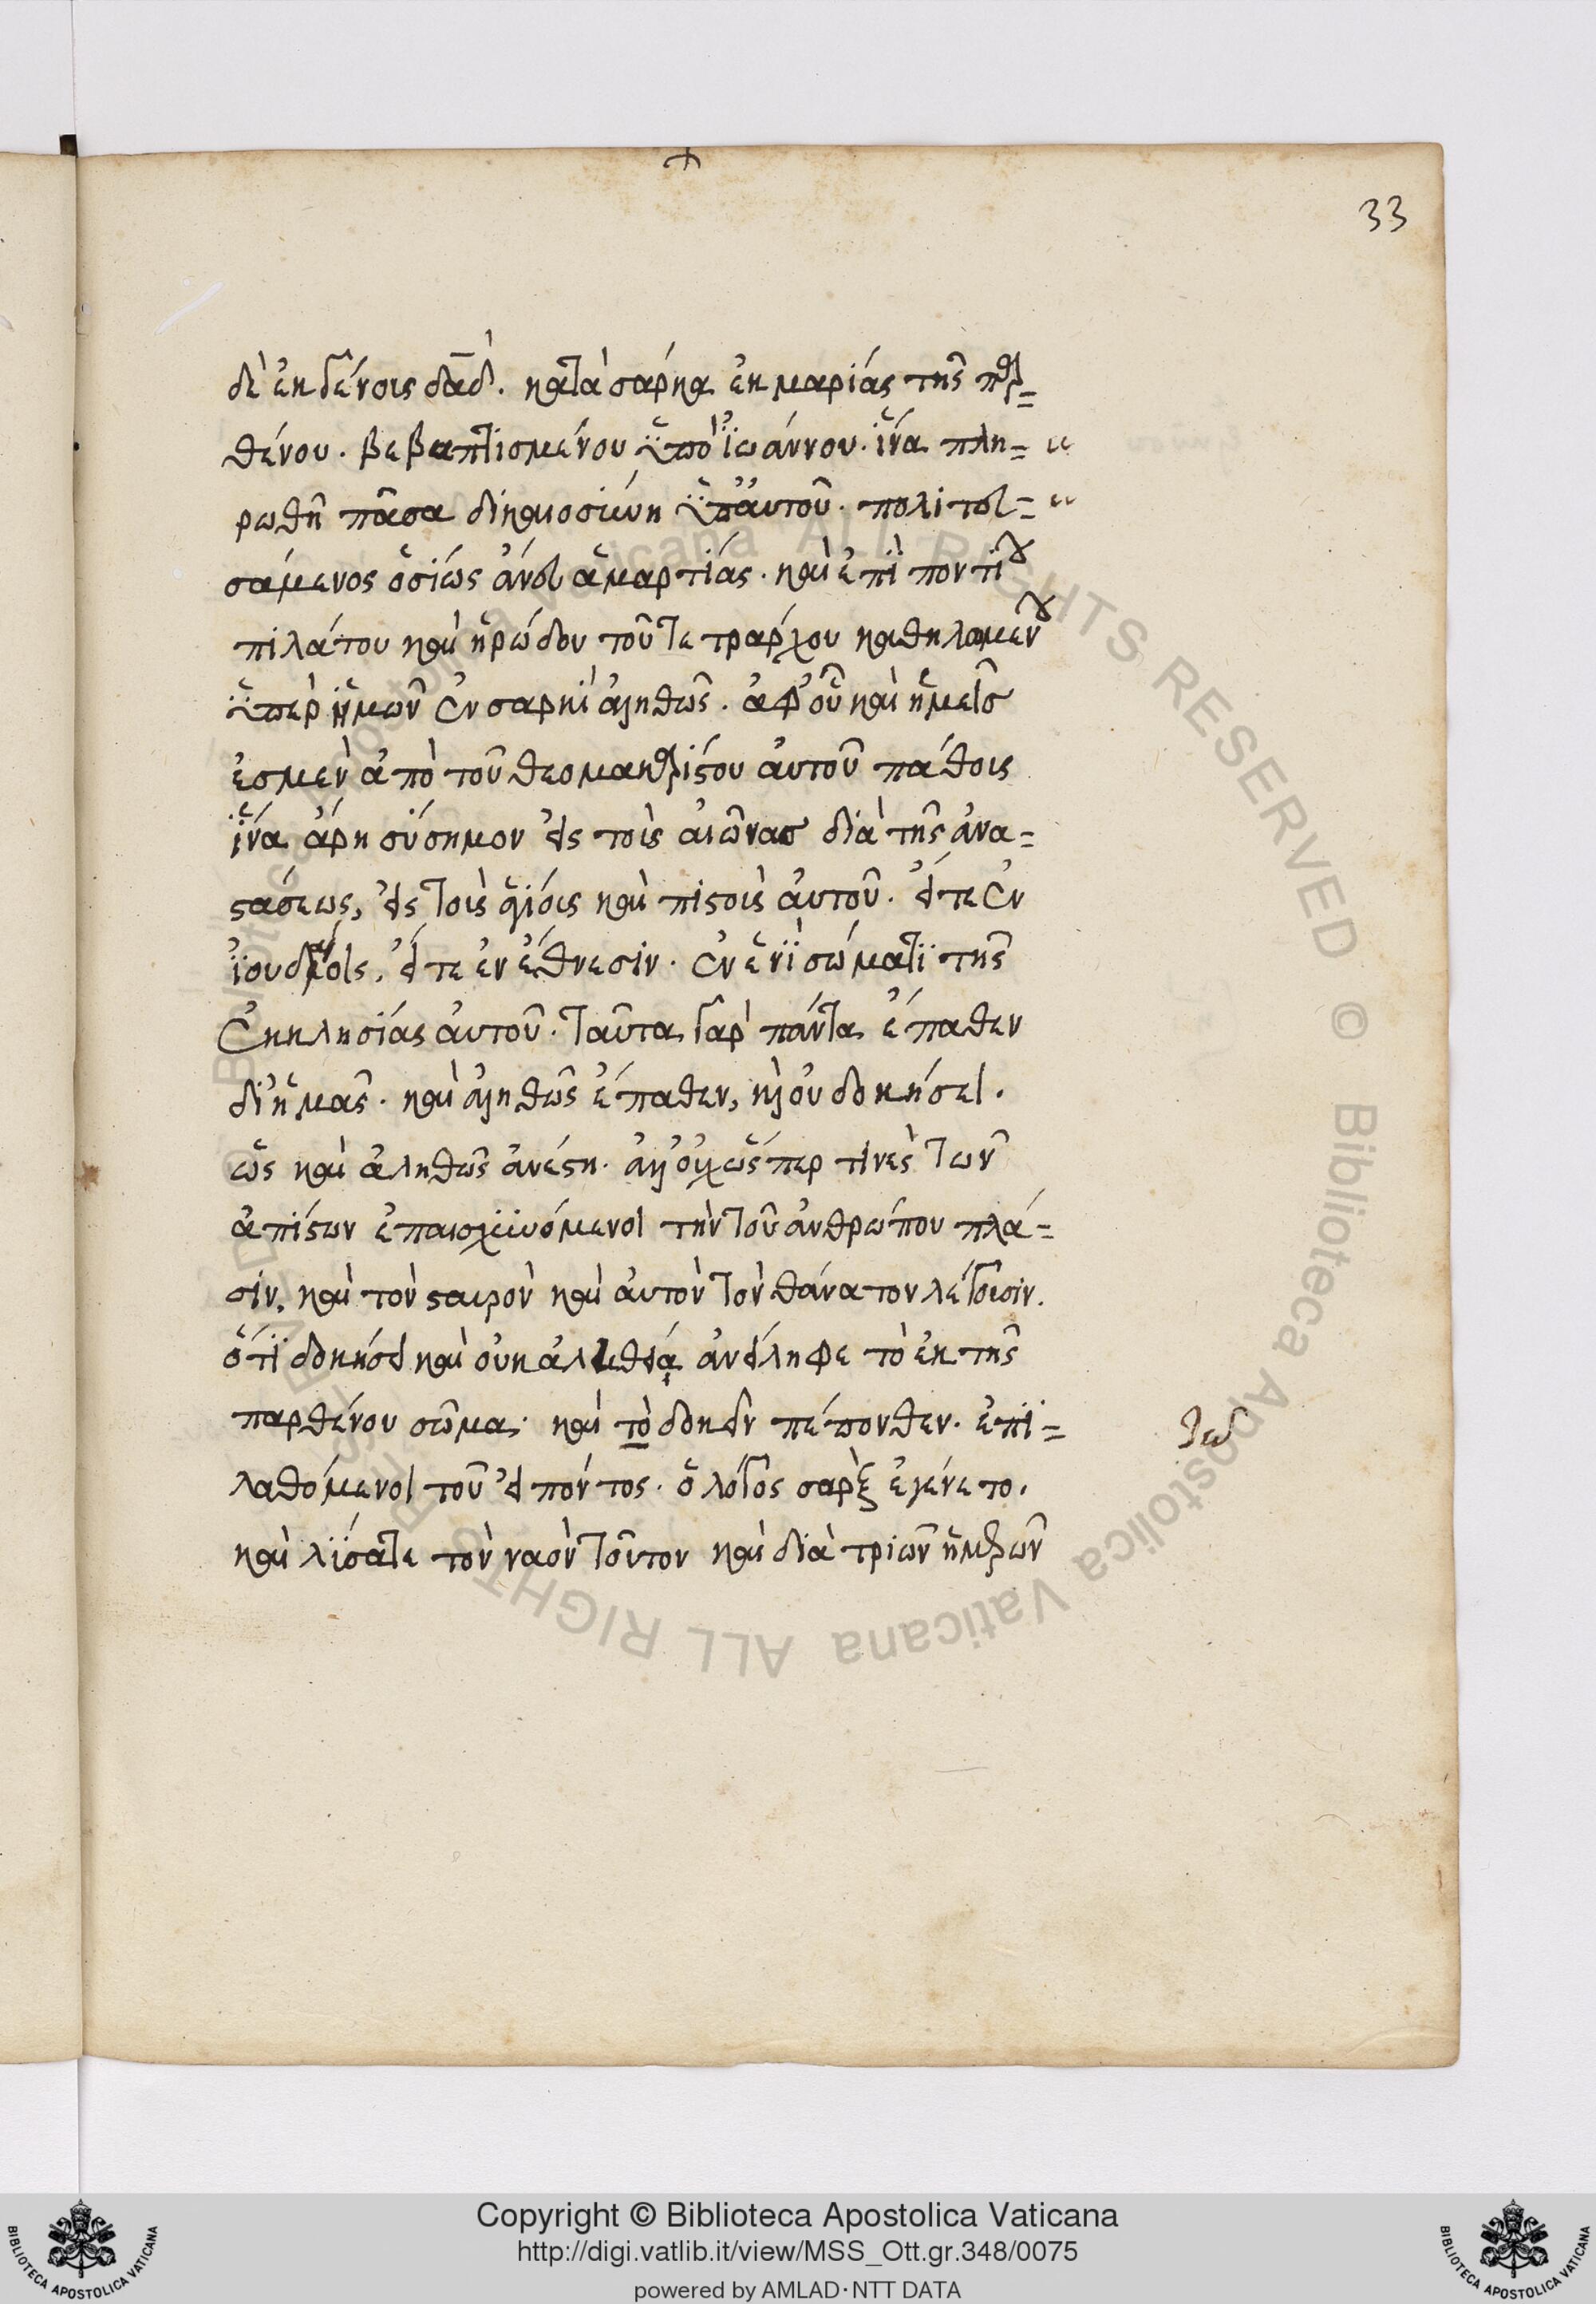 33
δὲ ἐκ γένους δᾱδ. κατὰ σάρκα ἐκ μαρίας τῆς παρ=
θένου. βεβαπτισμένου ὑπὸ ἰωάννου. ἵνα πλη=
ρωθῆ πᾶσα δικαιοσύνη ὑπ᾽αὐτοῦ. πολιτευ=
σάμενος ὁσίως ἄνευ ἁμαρτίας. καὶ ἐπὶ ποντίου
πιλάτου καὶ ἡρώδου τοῦ τετράρχου καθηλωμένου
ὑπὲρ ἡμῶν ἐν σαρκὶ ἀληθῶς. ἀφ᾽οὗ καὶ ἡμεῖς
ἐσμὲν ἀπὸ τοῦ θεομακαρίστου αὐτοῦ πάθους
ἵνα ἄρη σύσημον εἰς τοὺς αἰῶνας διὰ τῆς ἀνα=
στάσεως, εἰς τοὺς ἁγίους καὶ πιστοὺς αὐτοῦ. εἴτε ἐν
ἰουδαίοις, εἴτε ἐν ἔθνεσιν. ἐν ἑνὶ σώματι τῆς
ἐκκλησίας αὐτοῦ. ταῦτα γὰρ πάντα ἔπαθεν
δι᾽ἡμᾶς. καὶ ἀληθῶς ἔπαθεν, καὶ οὐ δοκήσει.
ὡς καὶ ἀληθῶς ἀνέστη. ἀλλ᾽οὐχ ὥσπερ τινὲς τῶν
ἀπίστων ἐπαισχυνόμενοι τὴν τοῦ ἀνθρώπου πλά=
σιν, καὶ τὸν σταυρὸν καὶ αὐτὸν τὸν θάνατον λέγουσιν.
ὅτι δοκήσει καὶ οὐκ ἀληθείᾳ ἀνείληφε τὸ ἐκ τῆς
παρθένου σῶμα. καὶ τὸ δοκεῖν πέπονθεν. ἐπι=
λαθόμενοι τοῦ εἰπόντος. ὁ λόγος σὰρξ ἐγένετο.
καὶ λύσατε τὸν ναὸν τοῦτον καὶ διὰ τριῶν ἡμερῶν
Copyright © Biblioteca Apostolica Vaticana
http://digi.vatlib.it/view/MSS_Ott.gr.348/0075
powered by AMLAD·NTT DATA